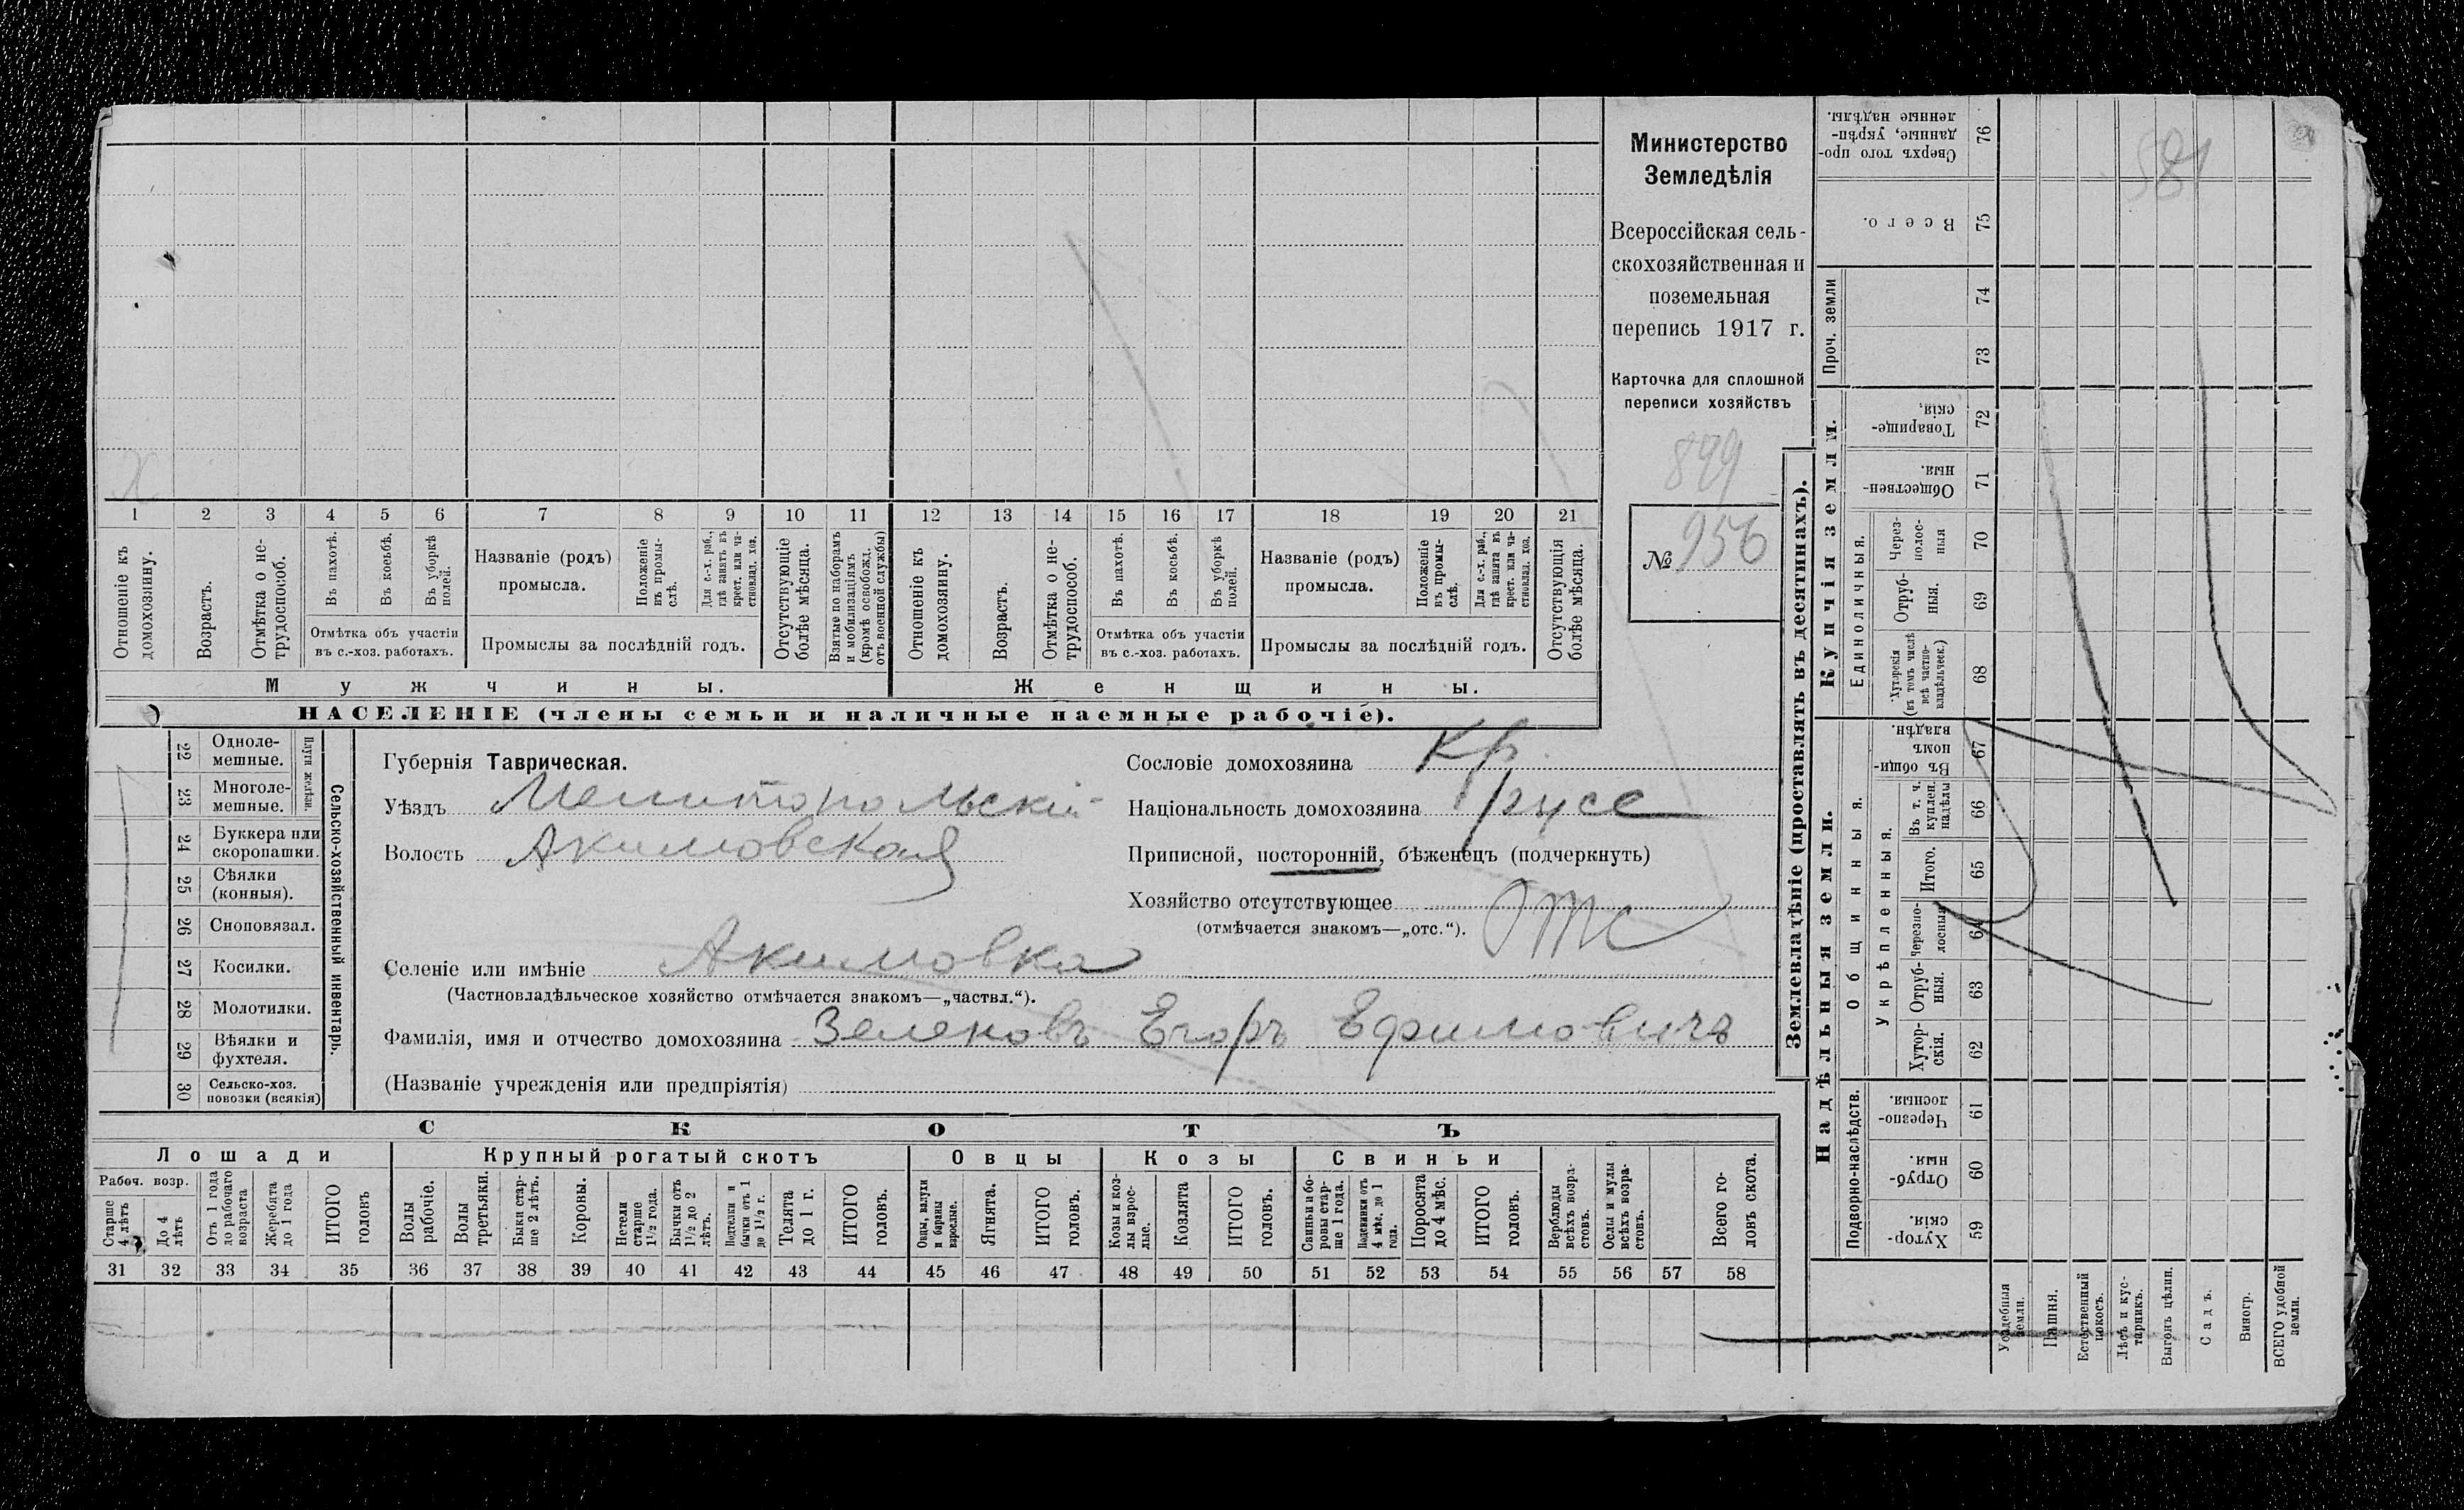 Министерство
Земледѣлія
Всероссійская сель-
скохозяйственная и
поземельная
перепись 1917 г.
Карточка для сплошной
переписи хозяйствъ
899
№ 956
581
1 2 3 4 5 6 7 8 9 10 11 12 13 14 15 16 17 18 19 20 21
Отношеніе къ
домохозяину.
Возрастъ.
Отмѣтка о не-
трудоспособ.
Въ пахотѣ.
Въ косьбѣ.
Въ уборкѣ
полей.
Отмѣтка объ участіи
въ с.-хоз. работахъ.
Названіе (родъ)
промысла.
Положеніе
въ промы-
слѣ.
Для с.-х. раб.,
гдѣ занятъ въ
крест. или ча-
стновлад. хоз.
Промыслы за послѣдній годъ.
Отсутствующіе
болѣе мѣсяца.
Взятые по наборамъ
и мобилизаціямъ
(кромѣ освобожд.
отъ военной службы)
Отношеніе къ
домохозяину.
Возрастъ.
Отмѣтка о не-
трудоспособ.
Въ пахотѣ.
Въ косьбѣ.
Въ уборкѣ
полей.
Отмѣтка объ участіи
въ с.-хоз. работахъ.
Названіе (родъ)
промысла.
Положеніе
въ промы-
слѣ.
Для с.-х. раб.,
гдѣ занята въ
крест. или ча-
стновлад. хоз.
Промыслы за послѣдній годъ.
Отсутствующія
болѣе мѣсяца.
Мужчины.
Женщины.
НАСЕЛЕНІЕ (члены семьи и наличные наемные рабочіе).
Сельско-хозяйственный инвентарь.
Плуги желѣзн.
22 Одноле-
мешные.
23 Многоле-
мешные.
24 Буккера или
скоропашки.
25 Сѣялки
(конныя).
26 Сноповязал.
27 Косилки.
28 Молотилки.
29 Вѣялки и
фухтеля.
30 Сельско-хоз.
повозки (всякія)
Губернія Таврическая.
Уѣздъ Мелитопольскій
Волость Акимовская
Сословіе домохозяина Кр.
Національность домохозяина русс
Приписной, посторонній, бѣженецъ (подчеркнуть)
Хозяйство отсутствующее Отс
(отмѣчается знакомъ—„отс.“).
Селеніе или имѣніе Акимовка
(Частновладѣльческое хозяйство отмѣчается знакомъ—„частвл.“).
Фамилія, имя и отчество домохозяина Зеленовъ Егоръ Ефимовичъ
(Названіе учрежденія или предпріятія)
СКОТЪ
Лошади
Крупный рогатый скотъ
Овцы
Козы
Свиньи
Рабоч. возр.
Старше
4 лѣтъ
До 4
лѣтъ
Отъ 1 года
до рабочаго
возраста
Жеребята
до 1 года
ИТОГО
головъ
Волы
рабочіе.
Волы
третьяки.
Быки стар-
ше 2 лѣтъ.
Коровы.
Нетели
старше
1½ года.
Бычки отъ
1½ до 2
лѣтъ.
Подтелки и
бычки отъ 1
до 1½ г.
Телята
до 1 г.
ИТОГО
головъ.
Овцы, валухи
и бараны
взрослые.
Ягнята.
ИТОГО
головъ.
Козы и коз-
лы взрос-
лые.
Козлята
ИТОГО
головъ.
Свиньи и бо-
ровы стар-
ше 1 года.
Подсвинки отъ
4 мѣс. до 1
года.
Поросята
до 4 мѣс.
ИТОГО
головъ.
Верблюды
всѣхъ возра-
стовъ.
Ослы и мулы
всѣхъ возра-
стовъ.
Всего го-
ловъ скота.
31 32 33 34 35 36 37 38 39 40 41 42 43 44 45 46 47 48 49 50 51 52 53 54 55 56 57 58
Землевладѣніе (проставлять въ десятинахъ).
Проч. земли
Купчія земли.
Единоличныя.
Надѣльныя земли.
Общинныя.
Укрѣпленныя.
Подворно-наслѣдств.
Сверхъ того про-
данные, укрѣп-
ленные надѣлы. 76
Всего. 75
74
73
Товарище-
скія. 72
Обществен-
ныя. 71
Через-
полос-
ныя 70
Отруб-
ныя. 69
Хуторскія
(въ томъ числѣ
всѣ частно-
владѣльческ.) 68
Въ общи-
номъ
владѣн. 67
Въ т. ч.
куплен.
надѣлы 66
Итого. 65
Черезпо-
лосныя 64
Отруб-
ныя. 63
Хутор-
скія. 62
Черезпо-
лосныя. 61
Отруб-
ныя. 60
Хутор-
скія. 59
Усадебныя
земли.
Пашня.
Естественный
покосъ.
Лѣсъ и кус-
тарникъ.
Выгонъ цѣлин.
Садъ.
Виногр.
ВСЕГО удобной
земли.